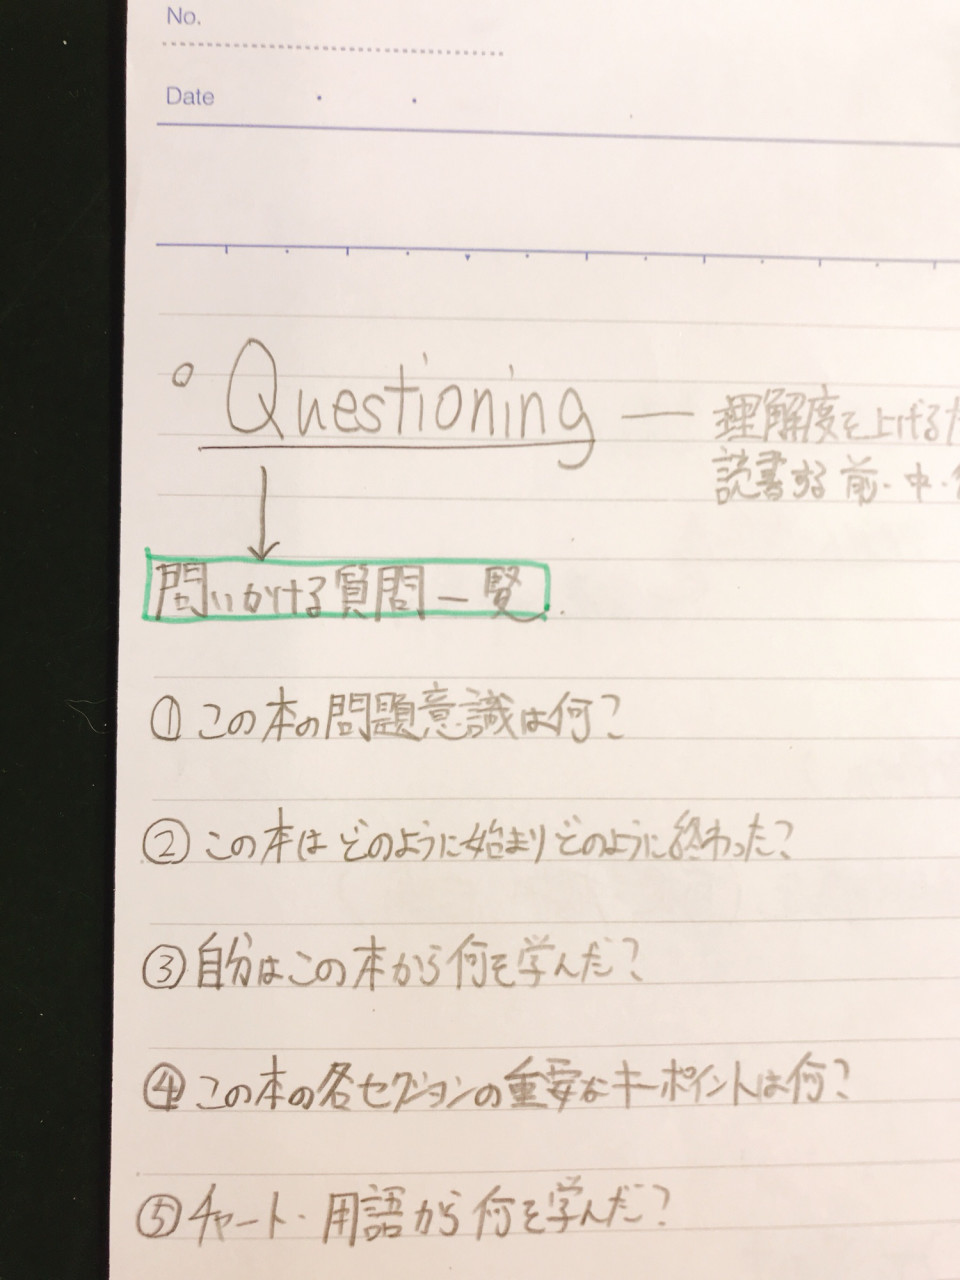 No.
Date
○ Questioning — 理解度を上げる
読書する前・中・
↓
問いかける質問一覧
① この本の問題意識は何?
② この本はどのように始まりどのように終わった?
③ 自分はこの本から何を学んだ?
④ この本の各セクションの重要なキーポイントは何?
⑤ チャート・用語から何を学んだ?